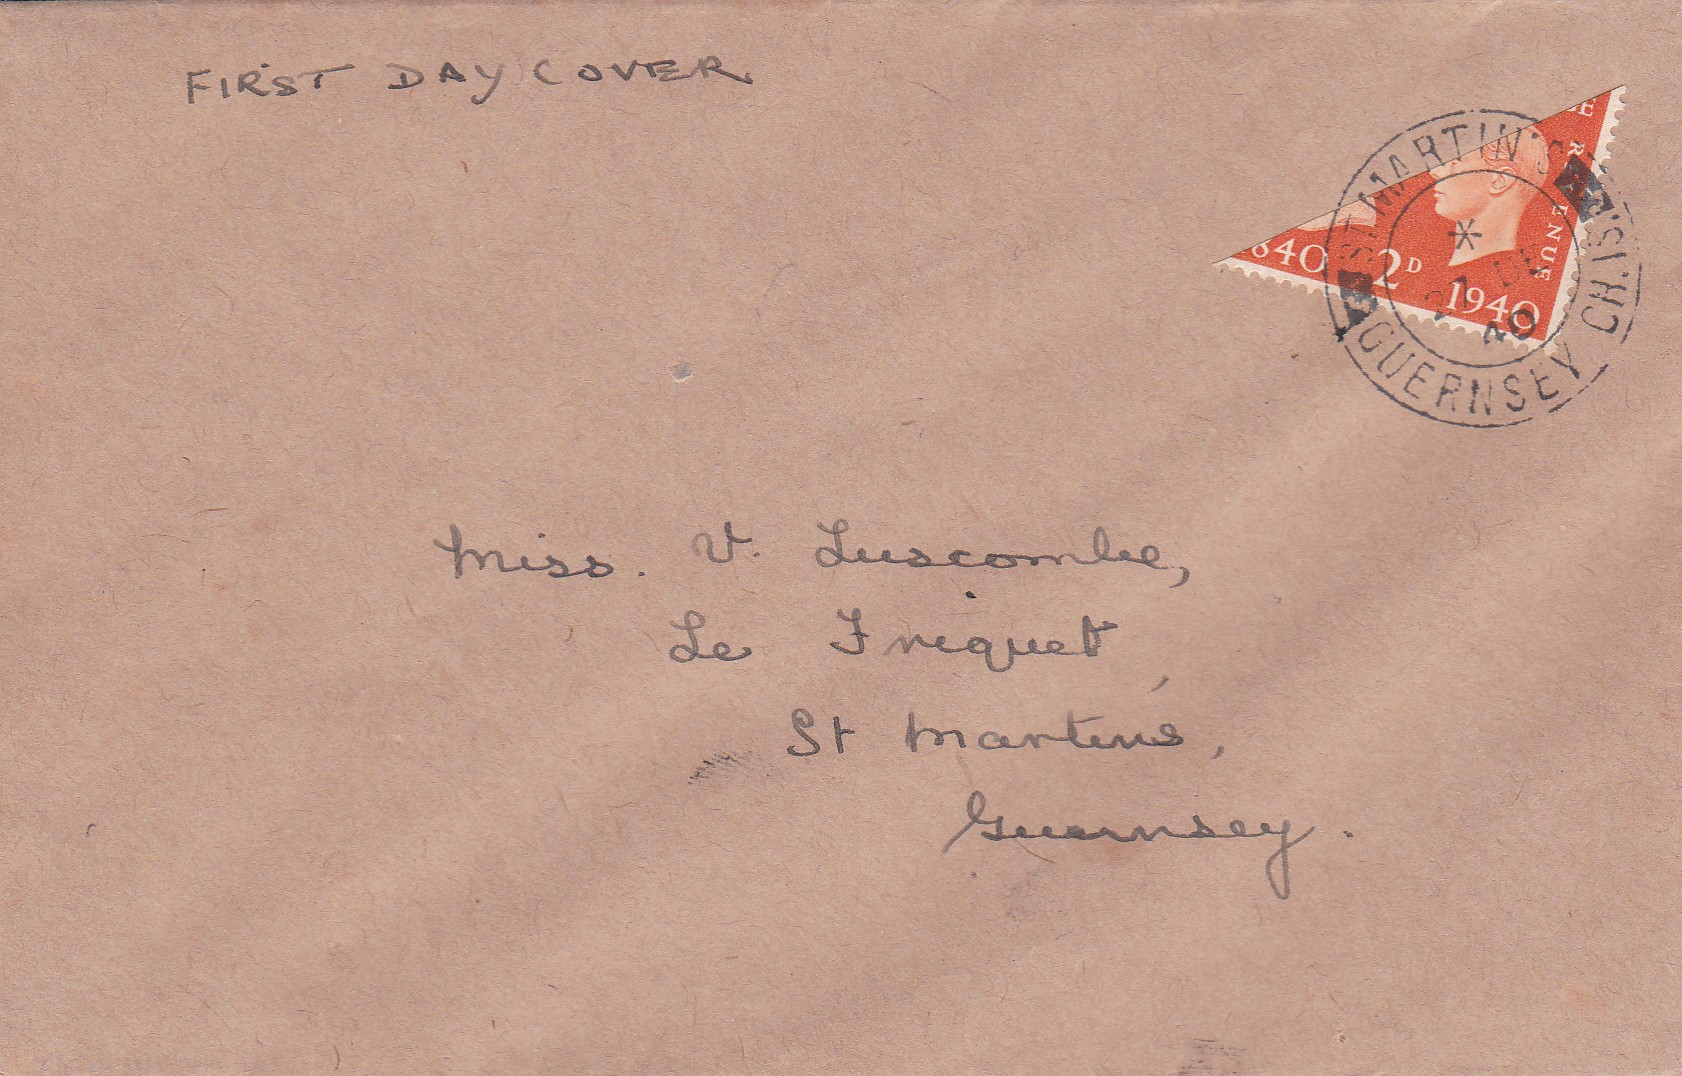 FIRST DAY COVER
ST. MARTIN'S
GUERNSEY CH.IS.
27 DE
40
RE
ENUE
840 2D 1940
Miss. V. Luscombe,
Le Friquet
St Martin's,
Guernsey.